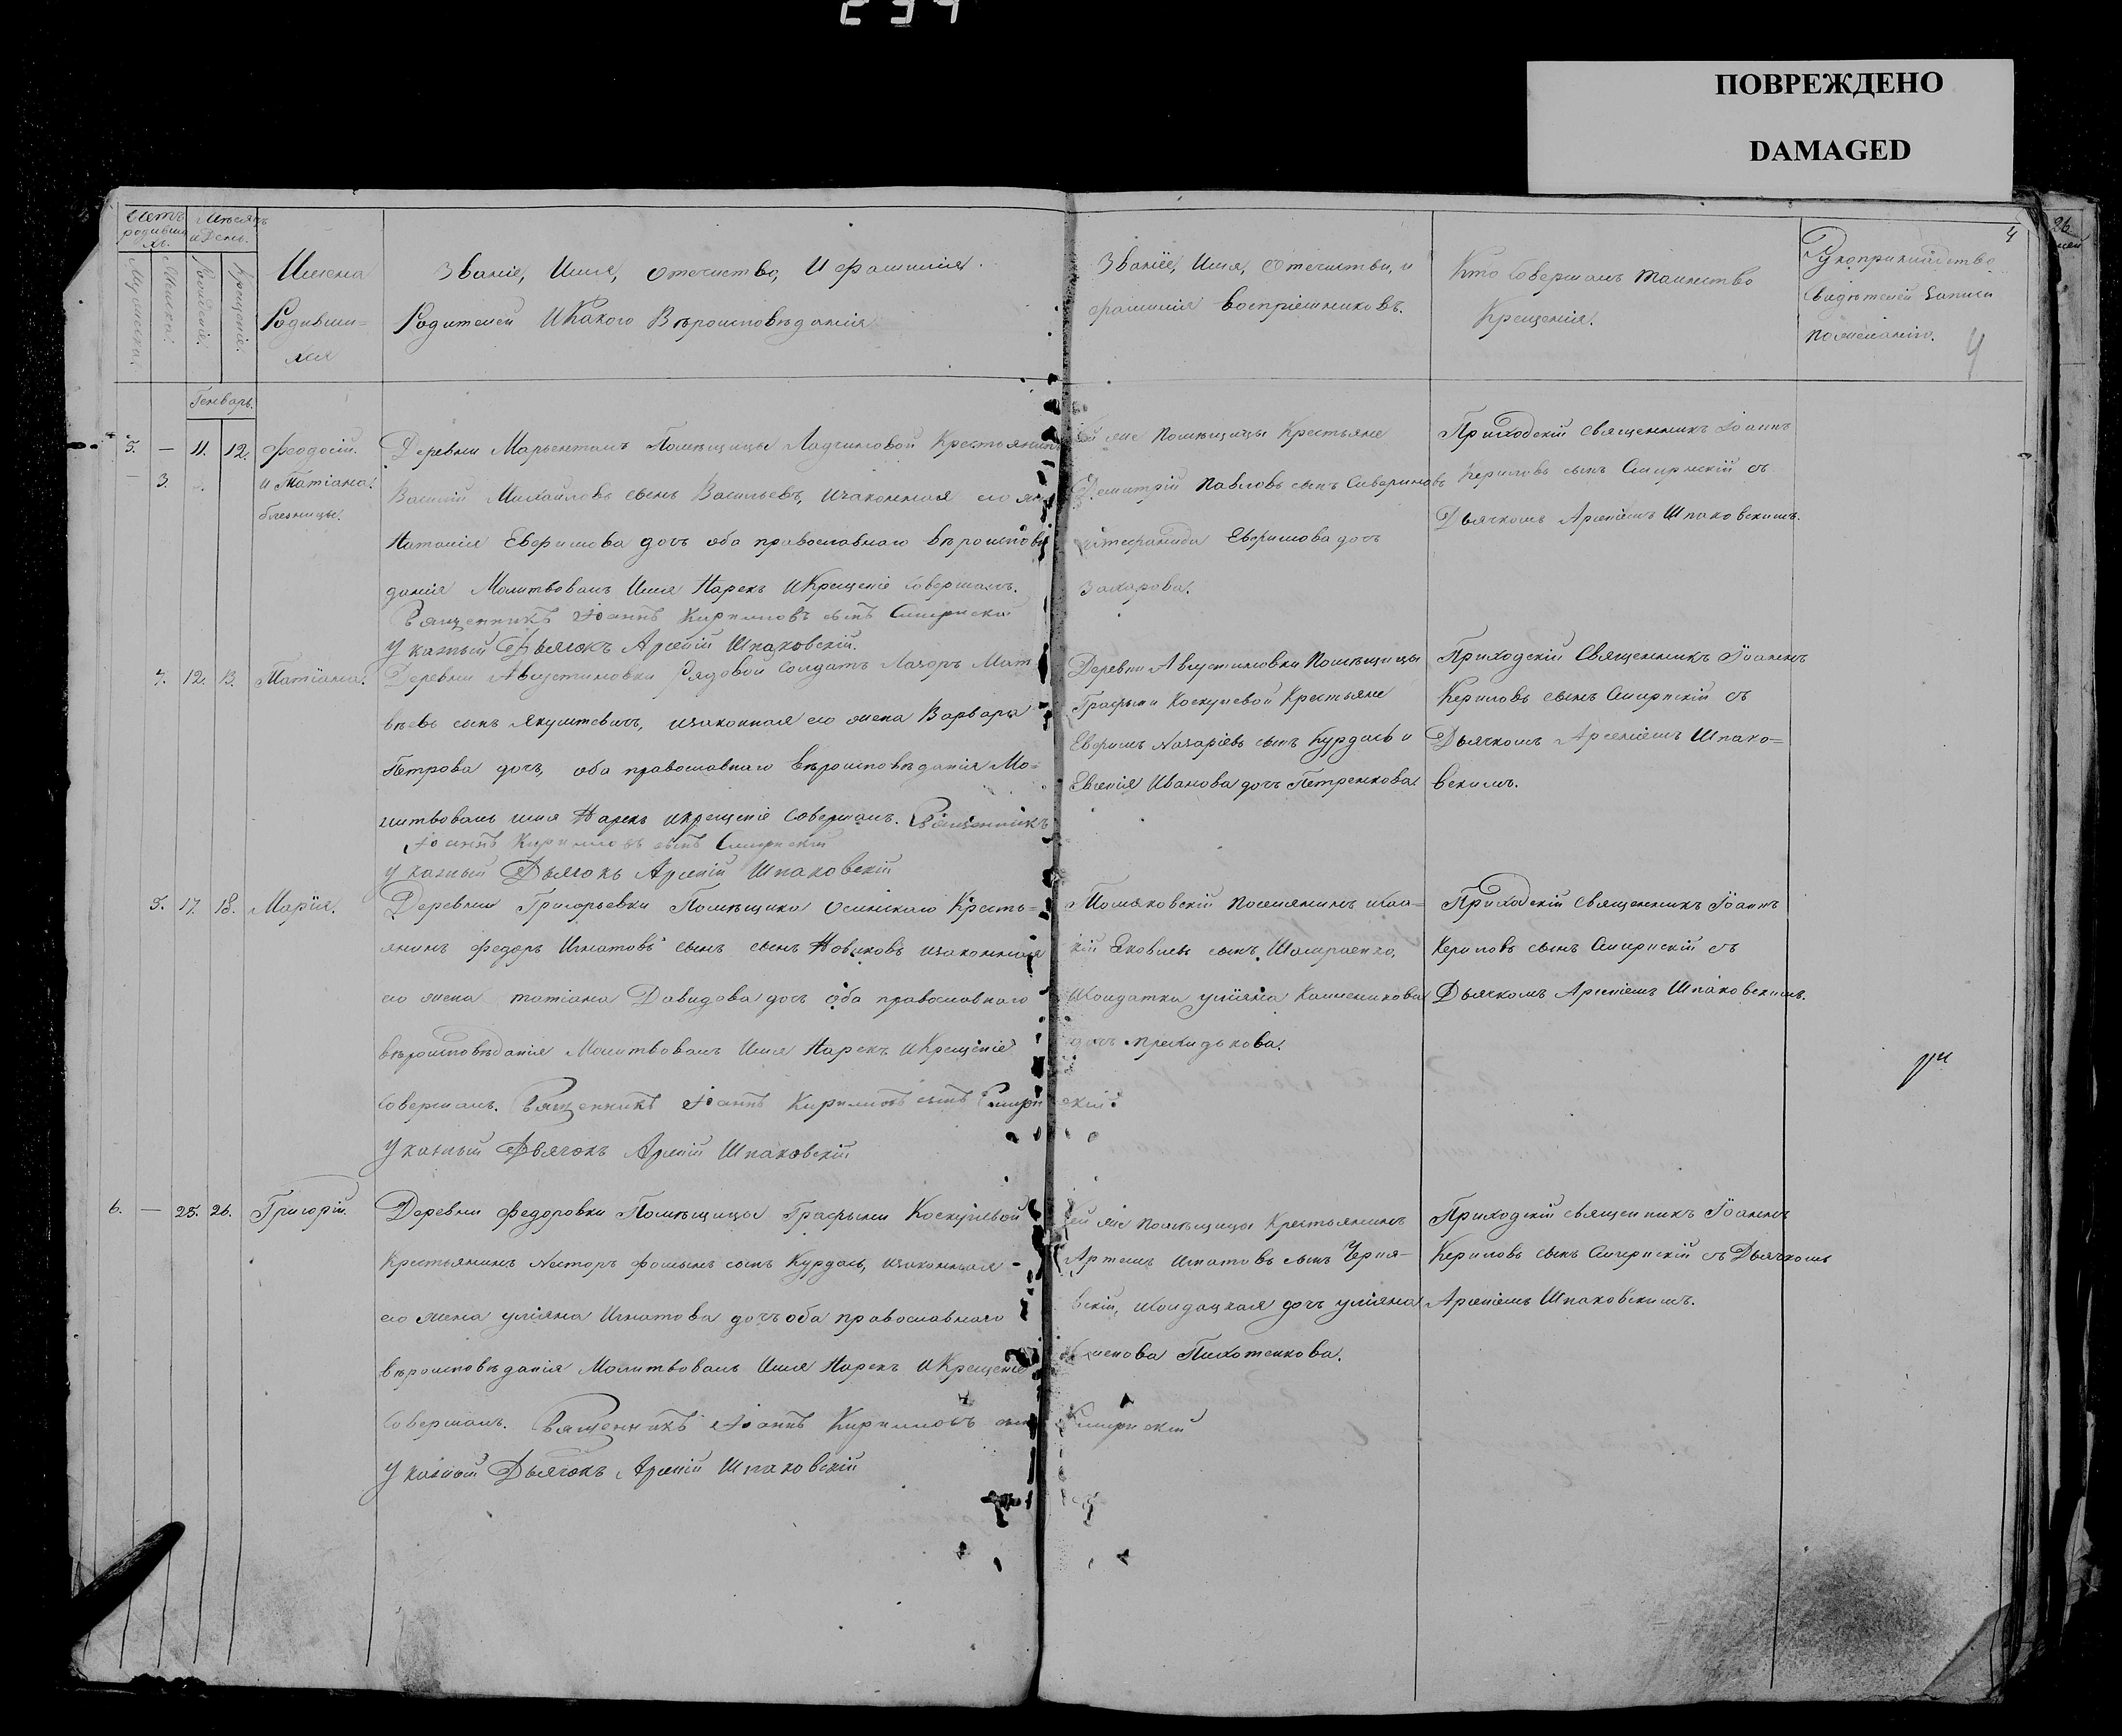 ПОВРЕЖДЕНО
DAMAGED
4
Счетъ родивших.
Мѣсяцъ и День.
Мужеска.
Женска.
Рожденія.
Крещенія.
Имена
Родивши=
хся
Званіе, Имя, Отечество, И фамилія.
Родителей И Какого Вѣроисповѣданія
Званіе, Имя, Отечиства, и
фамилія воспріемниковъ.
Кто Совершалъ таинство
Крещенія.
Рукоприкладство
Свидѣтелей Записи
пожеланію.
4
Генварь.
5. — 11. 12.
— 3.
Феодосій.
и Татіана.
близницы.
Деревни Марьенталь Помѣщицы Крестьянинъ
Василій Михайловъ сынъ Васильевъ, изаконная его
Наталія Евфимова дочь оба православнаго вѣроисповѣ
данія Молитвовалъ Имя Нарекъ И Крещеніе Совершалъ.
Священникъ Іоаннъ Кирилловъ сынъ
Указный Дьячокъ Арсеній Шпаковскій.
же Помѣщицы Крестьяне
Димитрій Павловъ сынъ Севериновъ
Евфимова дочь
Захарова.
Приходскій Священникъ Іоаннъ
Кериловъ сынъ Смирнскій съ
Дьячкомъ Арсеніемъ Шпаковскимъ.
4. 12. 13. Татіана.
Деревни Августиновки Рядовой Солдатъ Лазоръ Мат
вѣевъ сынъ Якушевичъ, изаконная его жена Варвара
Петрова дочь, оба православнаго Вѣроисповѣданія Мо=
литвовалъ имя Нарекъ икрещеніе Совершалъ. Священникъ
Іоаннъ Кирилловъ сынъ Смирнскій
Указный Дьячокъ Арсеній Шпаковскій
Деревни Августиновки Помѣщицы
Графыни Крестьяне
Евфимъ Назаріевъ сынъ Курдась и
Евгенія Иванова дочь Петренкова.
Приходскій Священникъ Іоаннъ
Кериловъ сынъ Смирнскій съ
Дьячкомъ Арсеніемъ Шпако=
вскимъ.
5. 17. 18. Марія.
Деревни Григорьевки Помѣщика Осинскаго Кресть=
янинъ Федоръ Игнатовъ сынъ сынъ Новиковъ изаконная
его жена татіана Давидова дочь оба православнаго
вѣроисповѣданія Молитвовалъ Имя Нарекъ И Крещеніе
Совершалъ. Священникъ Іоаннъ Кирилловъ сынъ Смирнскій
Указный Дьячокъ Арсеній Шпаковскій
Томаковскій поселянинъ
Яковлевъ сынъ
Исолдатка уліяна
дочь
Приходскій Священникъ Іоаннъ
Кериловъ сынъ Смирнскій съ
Дьячкомъ Арсеніемъ Шпаковскимъ.
6. — 25. 26. Григорій.
Деревни Федоровки Помѣщицы Графыни
Крестьянинъ Несторъ Фоминъ сынъ Курдась, изаконная
его жена уліяна Игнатова дочь оба православнаго
вѣроисповѣданія Молитвовалъ Имя Нарекъ И Крещеніе
Совершалъ. Священникъ Іоаннъ Кирилловъ сынъ Смирнскій
Указный Дьячокъ Арсеній Шпаковскій
той же Помѣщицы Крестьянинъ
Артемъ Игнатовъ сынъ Черня-
вскій, исолдацкая дочь уліяна
Пихотенкова.
Приходскій священникъ Іоаннъ
Кериловъ сынъ Смирнскій съ Дьячкомъ
Арсеніемъ Шпаковскимъ.